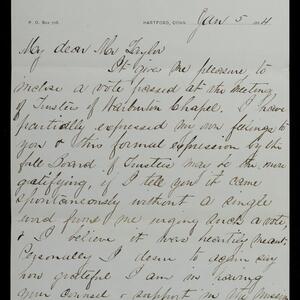 P. O. Box 706. HARTFORD, CONN. Jan 5
My dear Mr Taylor
It gives me pleasure to
inclose a vote passed at the meeting
of Trustees of Warburton Chapel. I have
partially expressed my own feelings to
you & this formal expression by the
full Board of Trustees may be the more
gratifying, if I tell you it came
spontaneously without a single
word from me urging such a vote,
& I believe it was heartily meant.
Personally I desire to again say
how grateful I am in having
your counsel & support in the